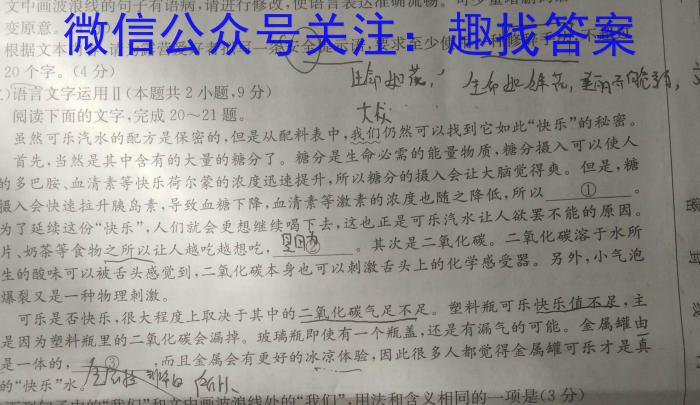 文中画波浪线的句子有语病,请进行修改,使语言表达准确流畅。
变原意。
微信公众号关注:趣找答案
根据文本
20个字。(4分)
生命如花,
语言文字运用Ⅱ(本题共2小题,9分)
阅读下面的文字,完成20~21题。
虽然可乐汽水的配方是保密的,但是从配料表中,我们仍然可以找到它如此“快乐”的秘密。
首先,当然是其中含有的大量的糖分了。糖分是生命必需的能量物质,糖分摄入可以使人
的多巴胺、血清素等快乐荷尔蒙的浓度迅速提升,所以糖分的摄入会让大脑觉得爽。但是,糖
摄入会快速拉升胰岛素,导致血糖下降,血清素等激素的浓度也随之降低,所以 ① 。
为了延续这份“快乐”,人们就会更想继续喝下去,这也正是可乐汽水让人欲罢不能的原因。
片、奶茶等食物之所以让人越吃越想吃, ② 。其次是二氧化碳。二氧化碳溶于水所
生的酸味可以被舌头感觉到,二氧化碳本身也可以刺激舌头上的化学感受器。另外,小气泡
爆裂又是一种物理刺激。
可乐是否快乐,很大程度上取决于其中的二氧化碳气足不足。塑料瓶可乐快乐值不足,主
是因为塑料瓶里的二氧化碳会漏掉。玻璃瓶即使有一个瓶盖,还是有漏气的可能。金属罐由
是一体的, ③ ;而且金属会有更好的冰凉体验,因此很多人都觉得金属罐可乐才是真
的“快乐”水。
下列句子中的“我们”和文中画波浪线处的“我们”,用法和含义相同的一项是(3分)